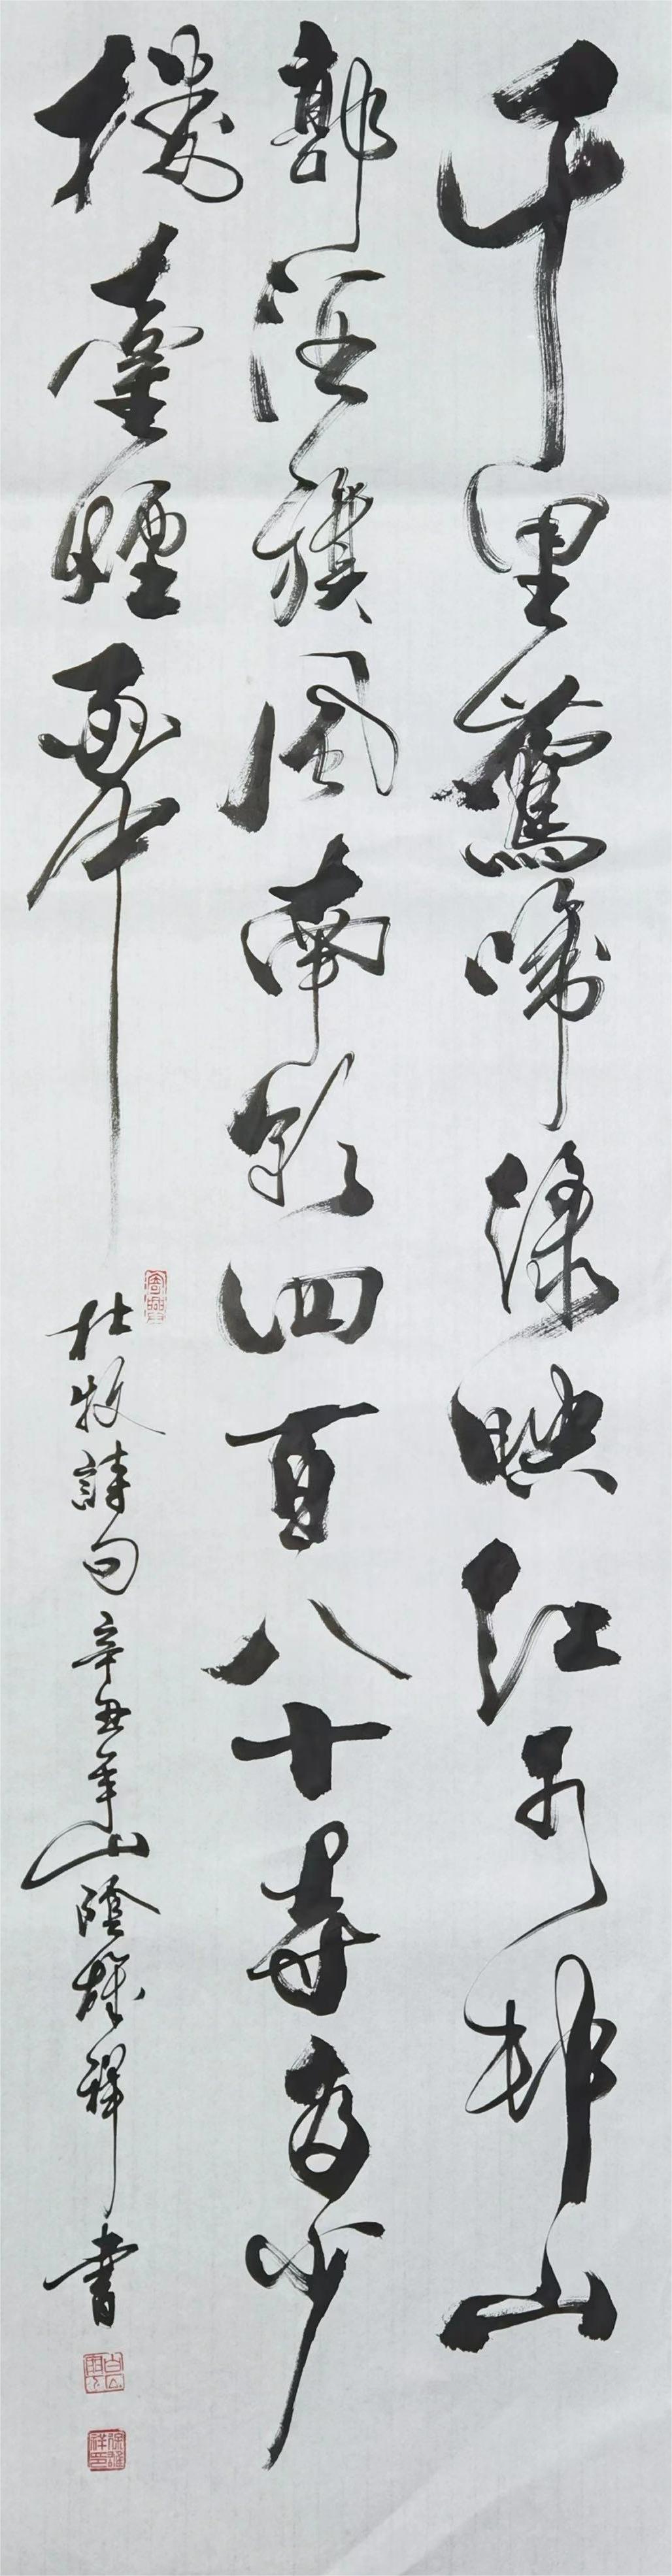 千里鶯啼綠映紅水邨山
郭酒旗風南朝四百八十寺多少
樓臺煙雨中
杜牧詩句辛丑年山陰雄祥書